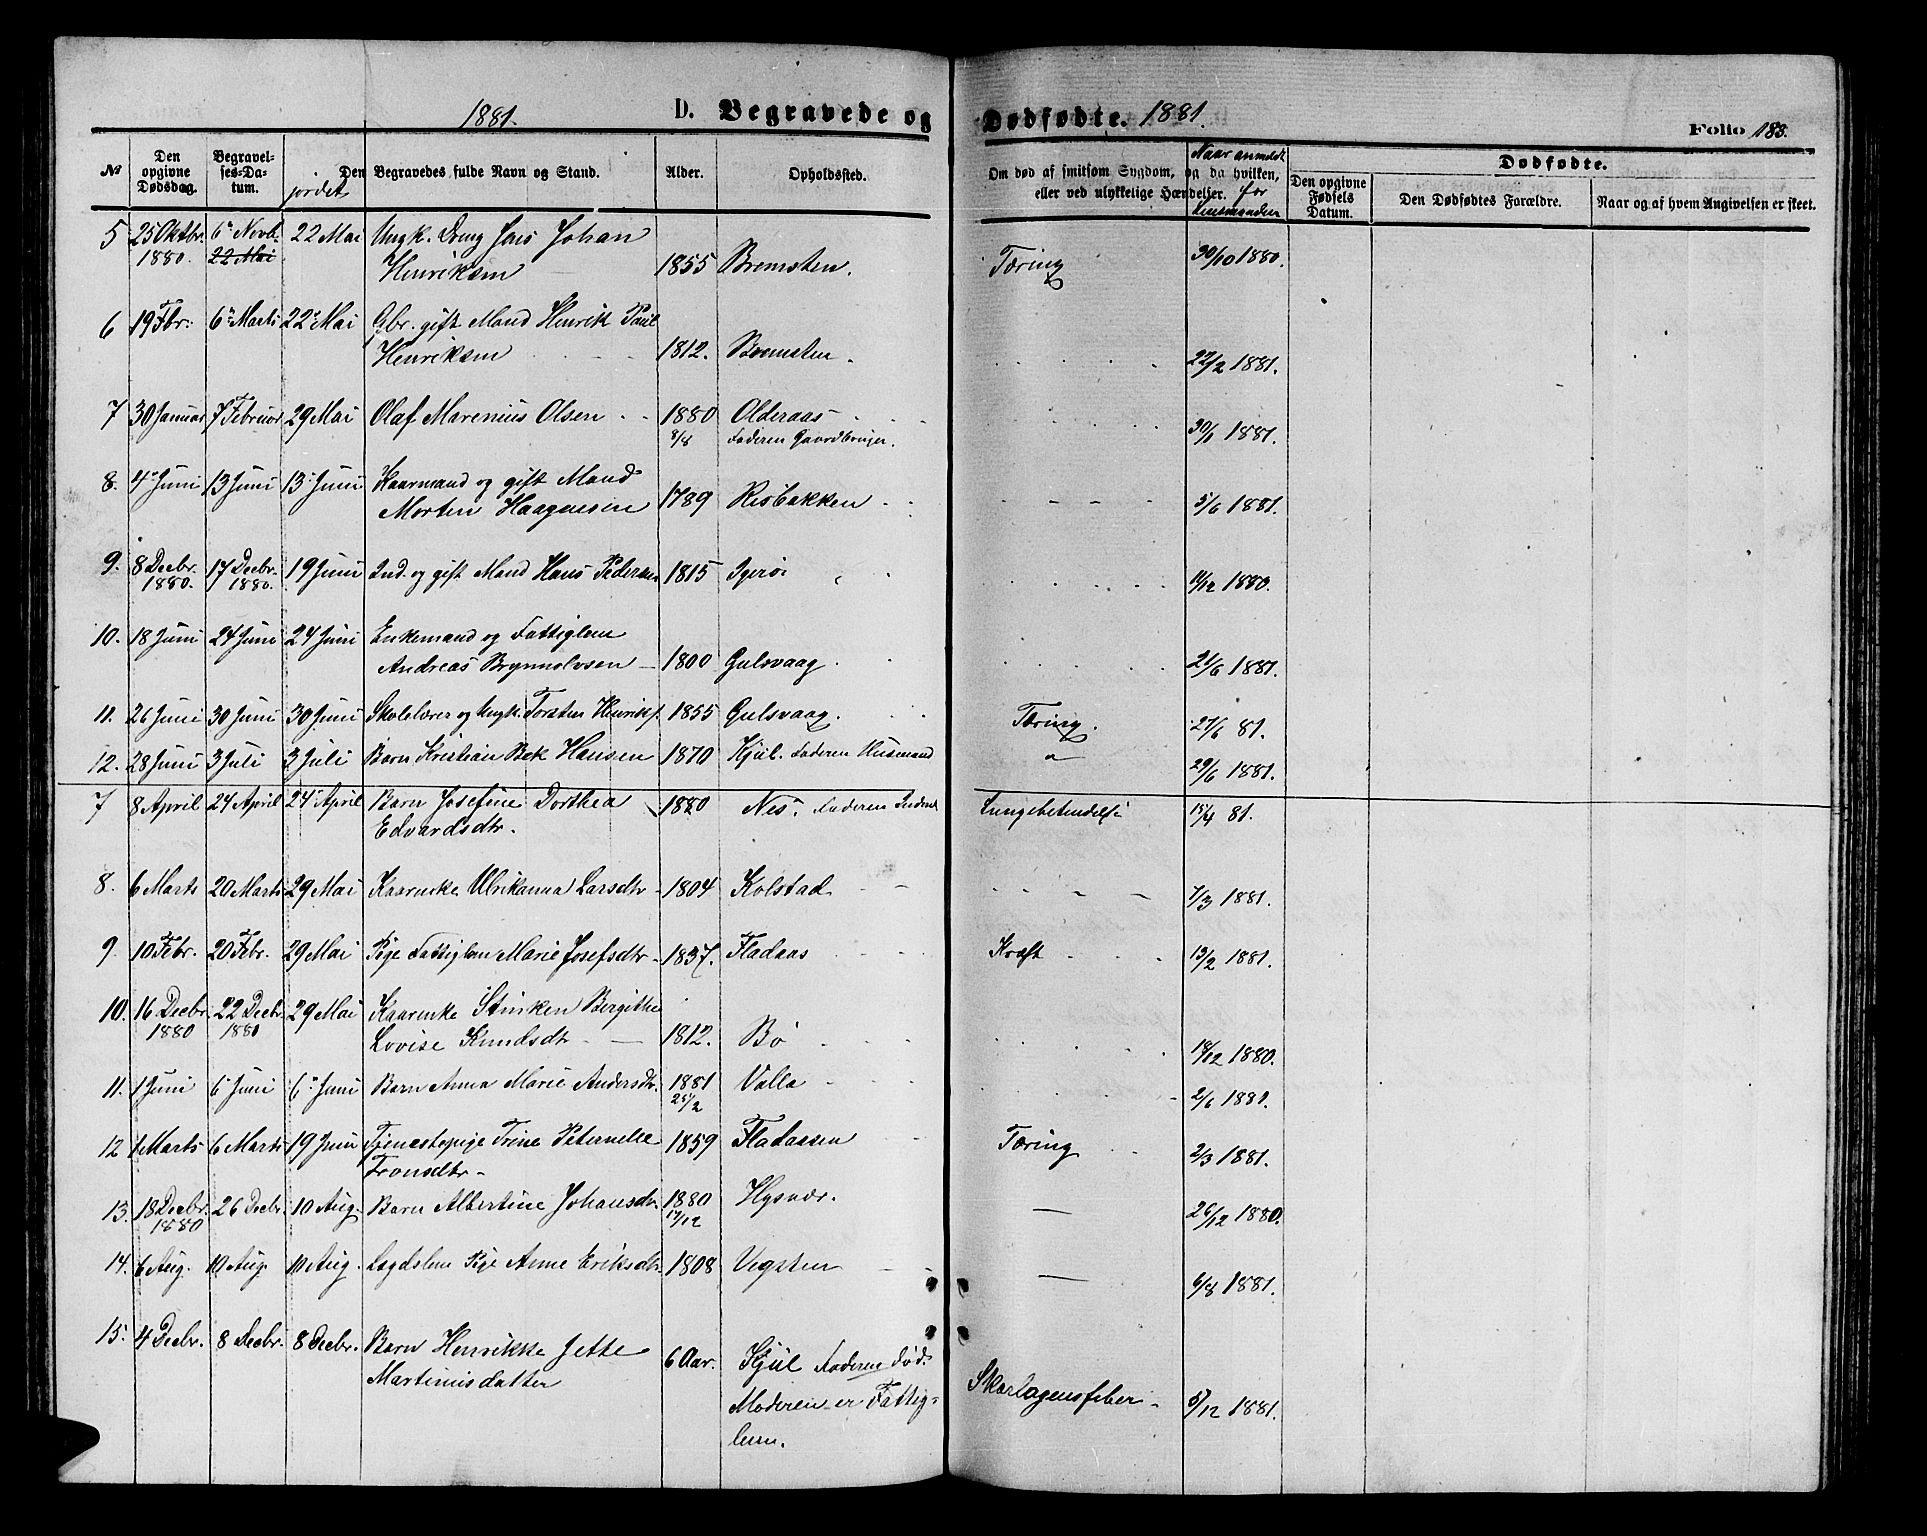 1881. D. Begravede og Dødfødte. 1881. Folio 183.
№ Den opgivne Dødsdag. Begravelses-Datum. Den jordet Begravedes fulde Navn og Stand. Alder. Opholdssted. Om død af smitsom Sygdom, og da hvilken, eller ved ulykkelige Hændelser. Naar anmeldt for Lensmanden
Dødfødte.
Den opgivne Fødsels Datum. Den Dødfødtes Forældre. Naar og af hvem Angivelsen er skeet.
5 25 Oktbr. 6te Novb. 22 Mai Ungk. Dreng Jens Johan
1880. 22 Mai Henriksen 1855 Bremsten. Tæring 30/10 1880.
6 19 Fbr. 6te Marts 22 Mai Gbr. gift Mand Henrik Paul
Henriksen 1812. Bremsten. 22/2 1881.
7 30 Januar 7 Februar 29 Mai Olaf Marenius Olsen 1880 Olderaas 30/1 1881.
8/8 Faderen Gaardbruger.
8. 4 Juni 13 Juni 13 Juni Kaarmand og gift Mand
Morten Haagensen 1789 Risbakken 5/6 1881.
9. 8 Decbr. 17 Decbr. 19 Juni Ind. og gift Mand Hans Pedersen 1815 Igerøi 14/12 1880.
1880. 1880.
10. 18 Juni 24 Juni 24 Juni Enkemand og Fattiglem
Andreas Brynnolvsen 1800 Gulsvaag 21/6 1881.
11. 26 Juni 30 Juni 30 Juni Skolelærer og Ungk. Torsten Henriks. 1855 Gulsvaag. Tæring. 27/6 81.
12. 28 Juni 3 Juli 3 Juli Barn Kristian Bek Hansen 1870 Kjul. Faderen Husmand 29/6 1881.
7 8 April 24 April 24 April Barn Josefine Dorthea 1880 Nes. Faderen Inderst Lungebetendelse 15/4 81.
Edvardsdtr.
8. 6 Marts 20 Marts 29 Mai Kaarenke Ulrikanna Larsdtr 1804 Kolstad 7/3 1881.
9. 10 Febr. 20 Febr. 29 Mai Pige Fattiglem Marie Josefsdtr 1837. Fladaas Kræft 13/2 1881.
10. 16 Decbr 22 Decb. 29 Mai Kaarenke Stinken Bergithe
1880 1880 Lovise Knudsdtr 1812. Bø 18/12 1880.
11. 1 Juni 6 Juni 6 Juni Barn Anna Marie Andersdtr. 1881 Valla 2/6 1881.
25/2
12 1 Marts 6 Marts 19 Juni Tjenestepige Trine Peternelle 1859 Fladaasen Tæring 2/3 1881.
Tronsdtr
13. 18 Decbr. 26 Decbr. 10 Aug. Barn Albertine Johansdtr. 1880 Hysvær. 26/12 1880.
1880 17/12
14. 6 Aug. 10 Aug. 10 Aug. Lægdslem Pige Anne Eriksdtr. 1808 Vegsten 6/8 1881.
15. 4 Decbr. 8 Decbr. 8 Decbr. Barn Henrikke Jette 6 Aar. Kjul Faderen død.
Martinusdatter Moderen er Fattig- Skarlagensfeber 5/12 1881.
lem.